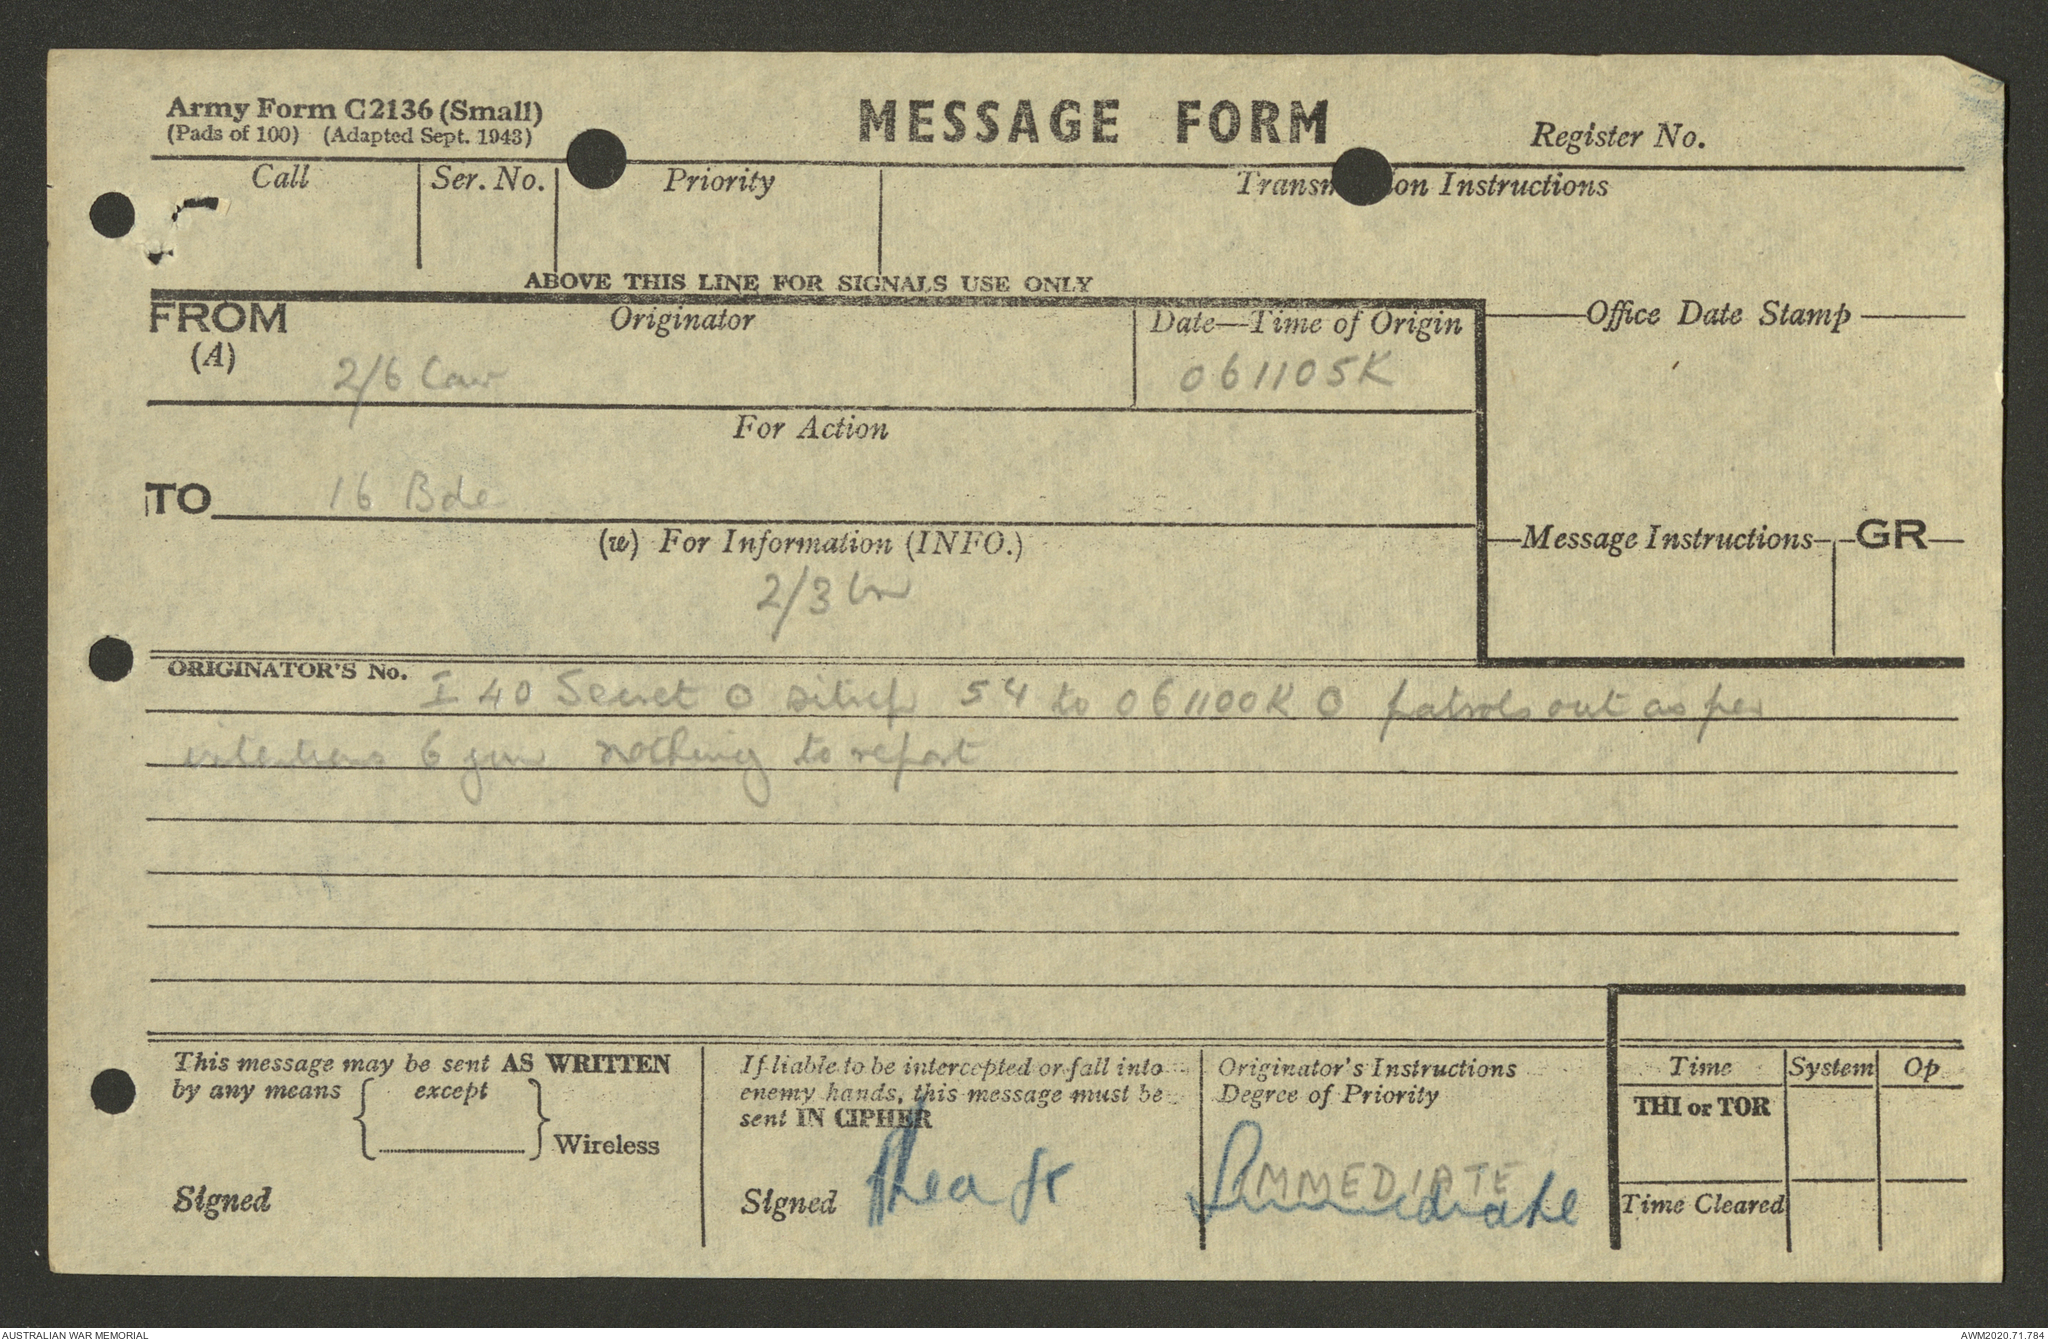 Army Form C2136 (Small)
(Pads of 100) (Adapted Sept. 1943)
MESSAGE FORM
Register No.
Call
Ser. No.
Priority
Transm on Instructions
ABOVE THIS LINE FOR SIGNALS USE ONLY
FROM
(A)
Originator
Date—Time of Origin
Office Date Stamp
2/6 Cav
061105K
For Action
TO
16 Bde
(w) For Information (INFO.)
Message Instructions
GR
2/3 bn
ORIGINATOR'S No.
I 40 Secret O sitrep 54 to 061100K O patrols out as per
intentions 6 jun nothing to report
This message may be sent AS WRITTEN
by any means { except
} Wireless
Signed
If liable to be intercepted or fall into
enemy hands, this message must be
sent IN CIPHER
Signed
Originator's Instructions
Degree of Priority
IMMEDIATE
Immediate
Time System Op
THI or TOR
Time Cleared
AUSTRALIAN WAR MEMORIAL
AWM2020.71.784